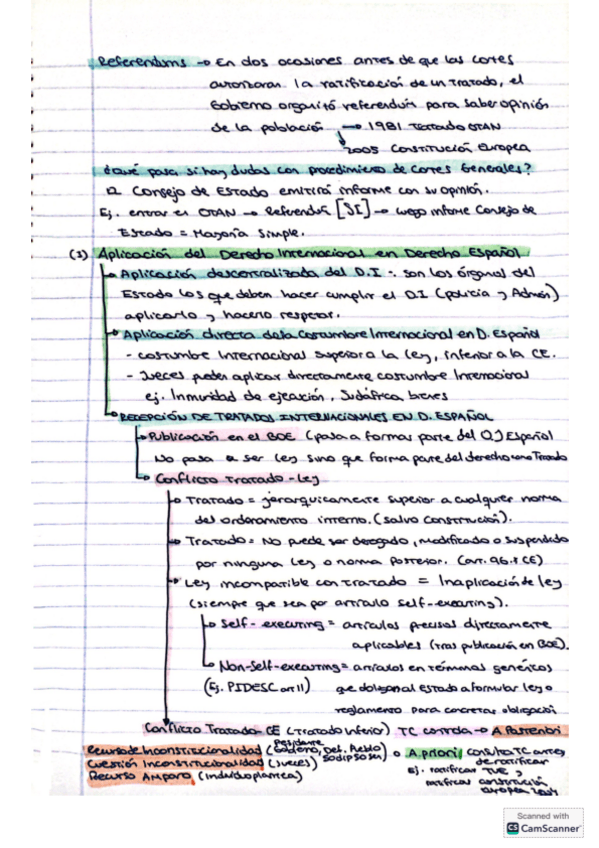 Referendums → En dos ocasiones antes de que las cortes
autorizaran la ratificación de un tratado, el
Gobierno organizó referendum para saber opinión
de la población → 1981 Tratado OTAN
2005 Constitución Europea
¿Qué pasa si hay dudas con procedimiento de Cortes Generales?
Consejo de Estado emitirá informe con su opinión.
Ej. entrar en OTAN → Referendum [SI] → luego informe Consejo de
Estado = Mayoría Simple.
(3) Aplicación del Derecho Internacional en Derecho Español
Aplicación descentralizada del D.I ·: son los órganos del
Estado los que deben hacer cumplir el D.I (policía y Admón)
aplicarlo y hacerlo respetar.
Aplicación directa de la Costumbre Internacional en D. Español
- costumbre Internacional superior a la ley, inferior a la CE.
- Jueces pueden aplicar directamente costumbre Internacional
ej. Inmunidad de ejecución, Sudáfrica, bienes
RECEPCIÓN DE TRATADOS INTERNACIONALES EN D. ESPAÑOL
Publicación en el BOE (pasa a formar parte del OJ Español
No pasa a ser ley sino que forma parte del derecho como Tratado
Conflicto Tratado - Ley
Tratado = jerárquicamente superior a cualquier norma
del ordenamiento interno. (salvo Constitución).
Tratado = No puede ser derogado, modificado o suspendido
por ninguna ley o norma posterior. (art. 96.1 CE)
Ley incompatible con tratado = Inaplicación de ley
(siempre que sea por artículo self-executing).
Self-executing = artículos precisos directamente
aplicables (tras publicación en BOE).
Non-self-executing = artículos en términos genéricos
(Ej. PIDESC art 11) que obligan al estado a formular ley o
reglamento para concretar obligación
Conflicto Tratado-CE (Tratado inferior) TC controla → A Posteriori
Recurso de Inconstitucionalidad (Presidente Gobierno, Def. Pueblo) o A priori, consulta TC antes
Cuestión Inconstitucionalidad (jueces) 50dip 50sen de ratificar
Recurso Amparo (individuo plantea) Ej. ratificar TUE,
ratificar constitución
europea 2004
Scanned with
CS CamScanner